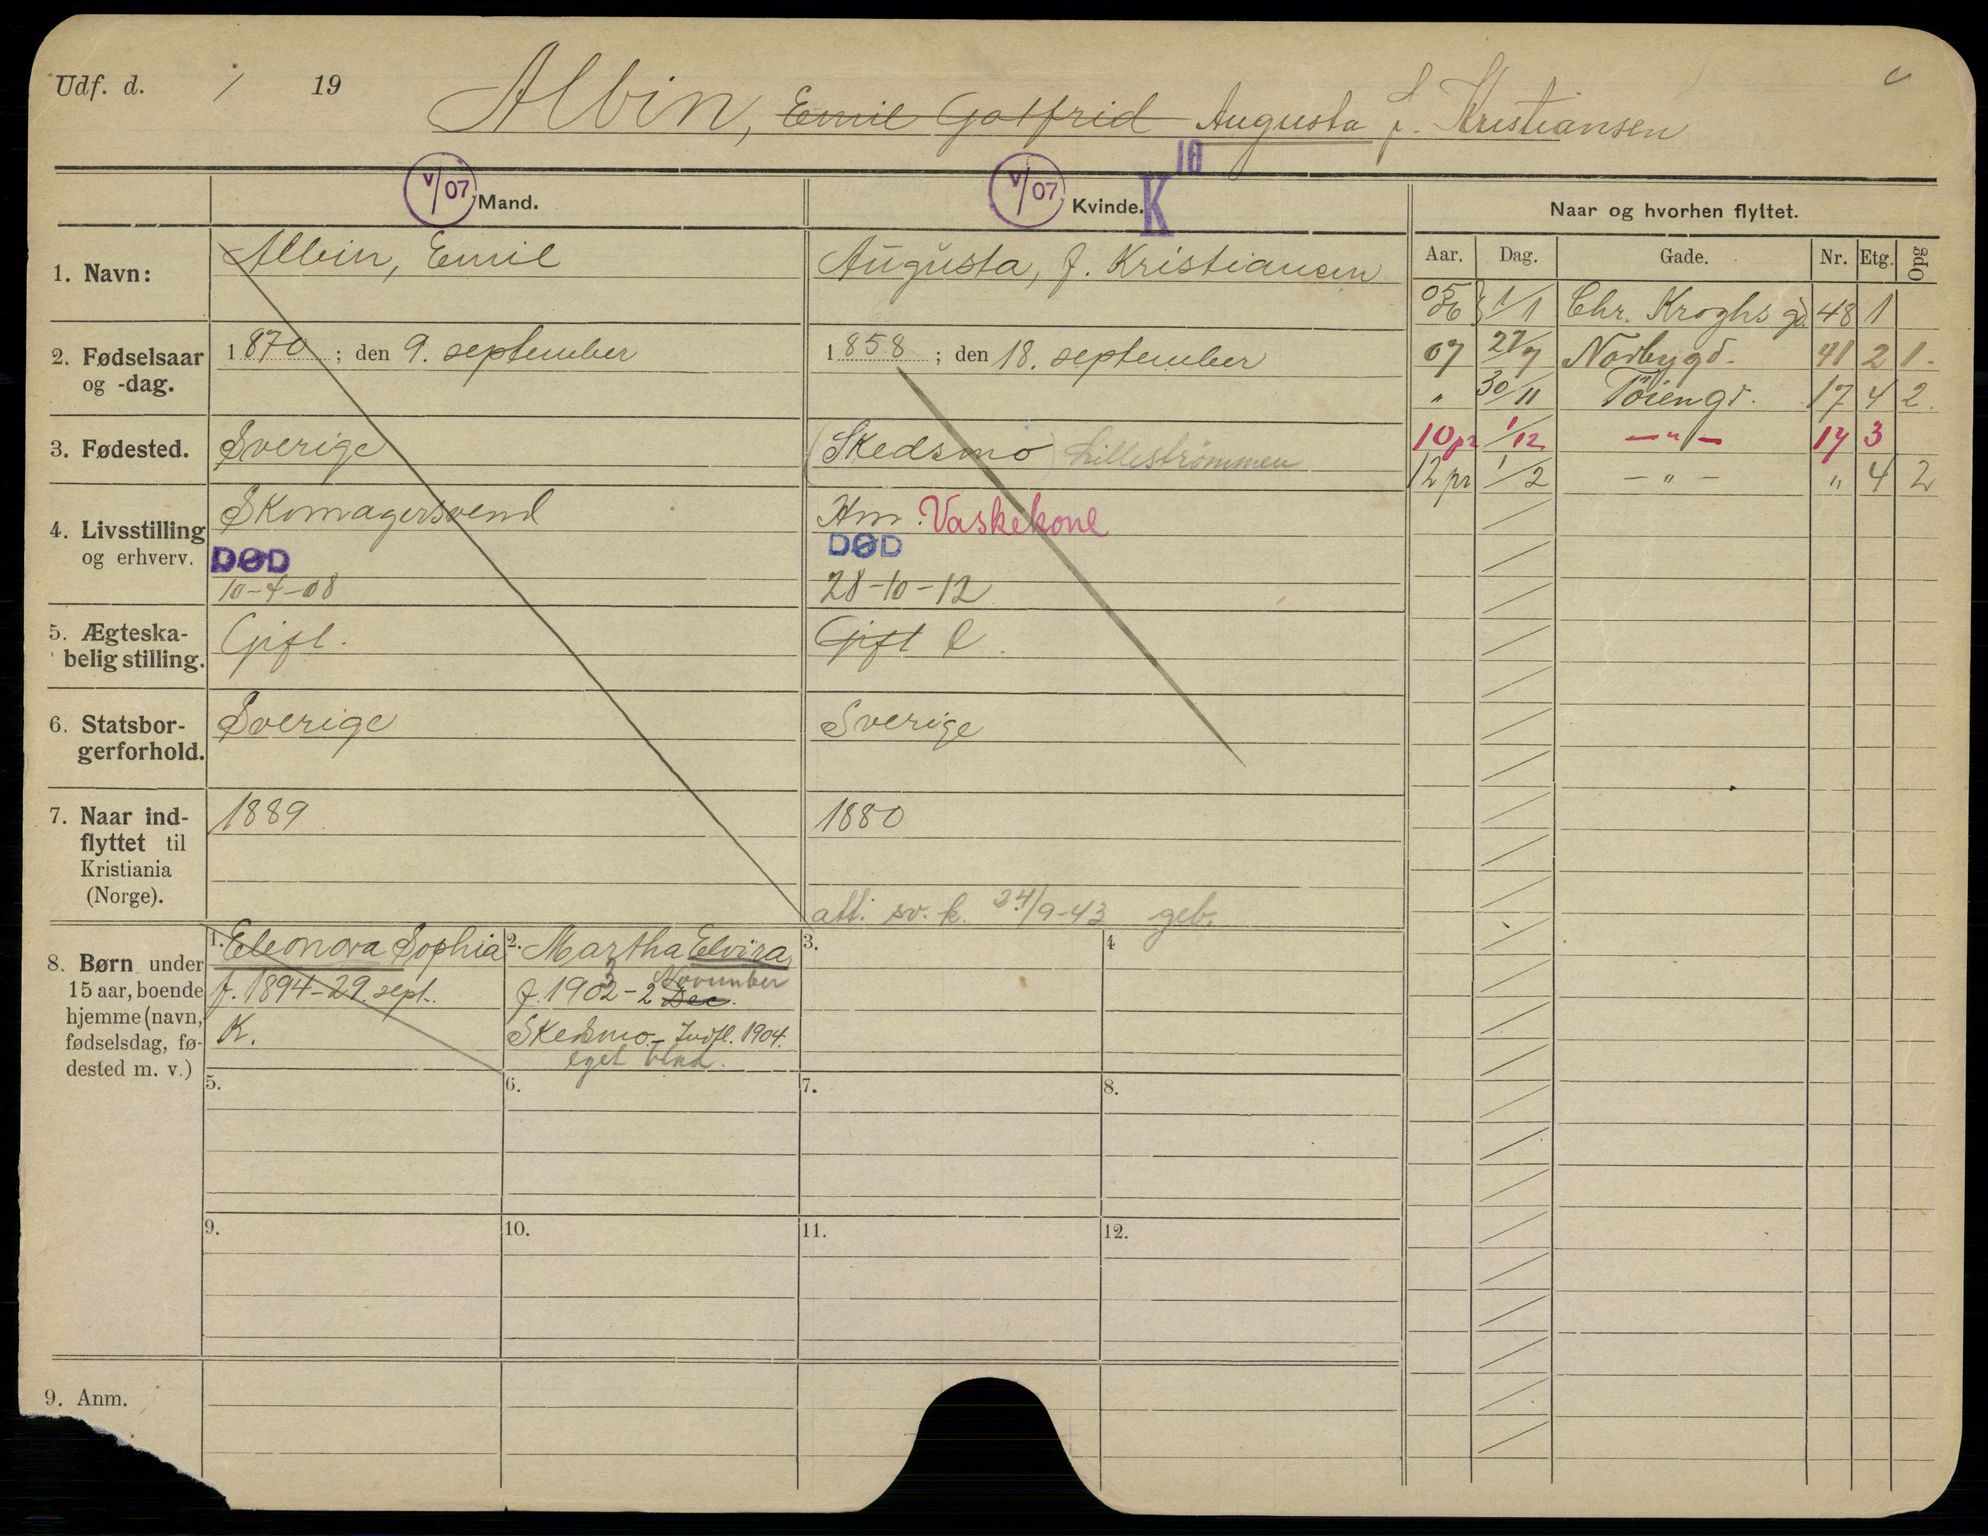 Udf. d. / 19
Albin, Emil Gotfrid Augusta f. Kristiansen
V/07 Mand.
V/07 Kvinde. K 10
Naar og hvorhen flyttet.
Aar. Dag. Gade. Nr. Etg. Opg
1. Navn: Albin, Emil
Augusta, f. Kristiansen
2. Fødselsaar og -dag.
1870 ; den 9. september
1858 ; den 18. september
3. Fødested. Sverige
(Skedsmo) Lillestrømmen
4. Livsstilling og erhverv.
Skomagersvend
DØD
10-4-08
Hm. Vaskekone
DØD
28-10-12
5. Ægteska-
belig stilling.
Gift.
Gift E.
6. Statsbor-
gerforhold.
Sverige
Sverige
7. Naar ind-
flyttet til
Kristiania
(Norge).
1889
1880
att. sv. k. 24/9-43 geb.
8. Børn under
15 aar, boende
hjemme (navn,
fødselsdag, fø-
dested m. v.)
1. Eleonora Sophia
f. 1894-29. sept.
K.
2. Martha Elvira
November
f. 1902-2 Dec.
3
Skedsmo - Indfl. 1904.
eget blad.
3.
4
5.
6.
7.
8.
9.
10.
11.
12.
9. Anm.
05
06 } 1/1 Chr. Kroghs gd. 48 1
07 27/7 Norbygd. 41 2 1.
" 30/11 Tøiengd. 17 4 2.
10 pr 1/12 — " — 17 3
12 pr 1/2 — " — " 4 2